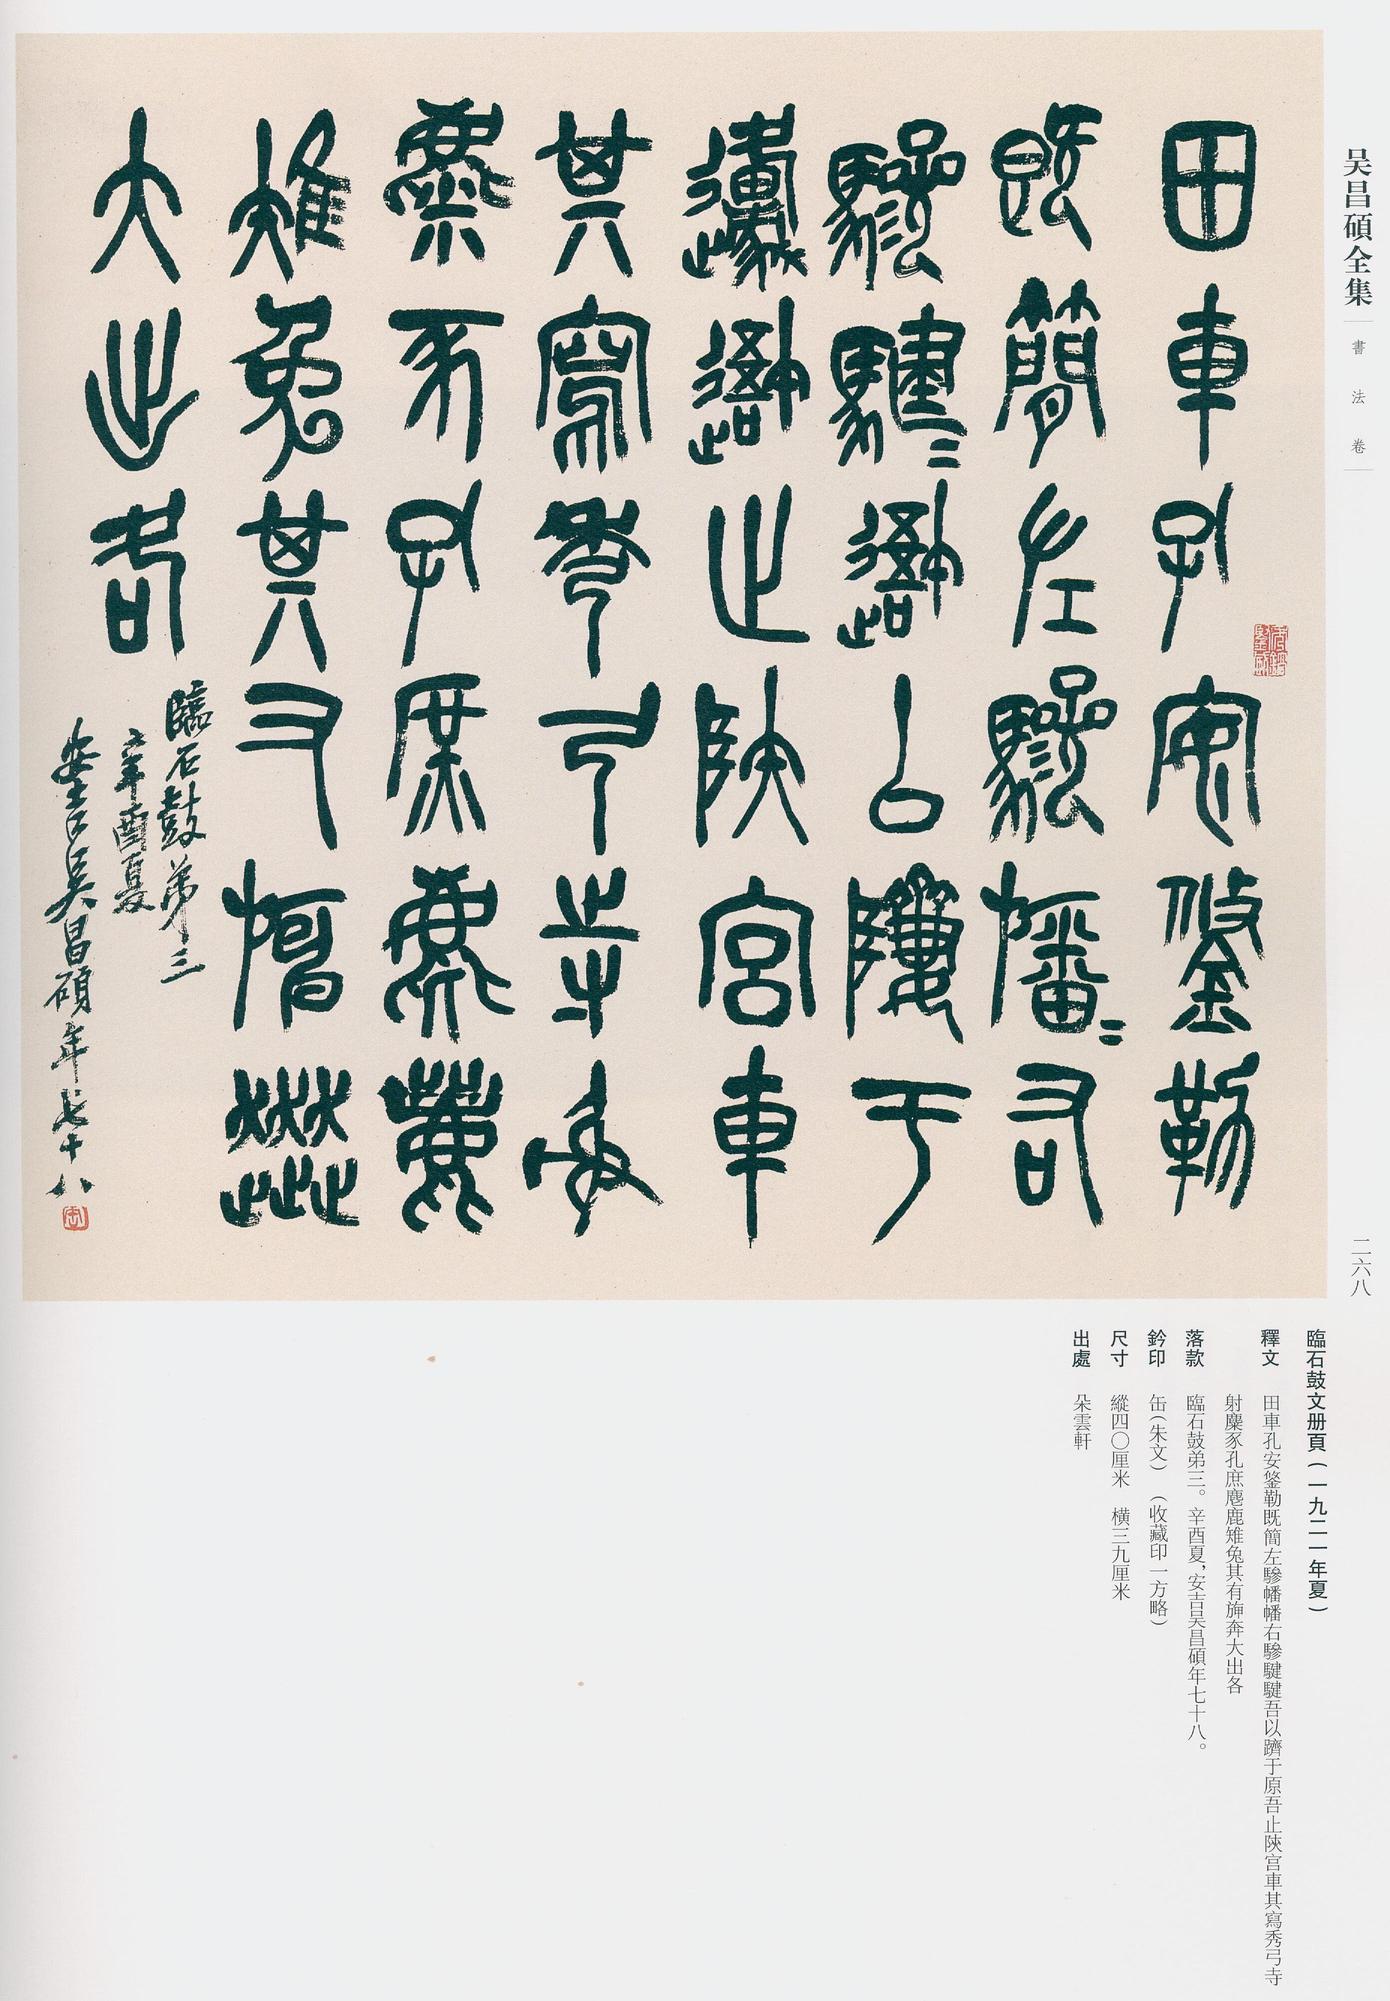 吴昌碩全集
書法卷
二六八
田車孔安鋚勒
既簡左驂幡=右
驂騝=吾以隮于
邍吾止陝宮車
其寫秀弓寺射
麋豕孔庶麀鹿
雉兔其又旛奔
大出各
臨石鼓弟三
辛酉夏
安吉吴昌碩年七十八
臨石鼓文册頁（一九二一年夏）
釋文 田車孔安鋚勒既簡左驂幡幡右驂騝騝吾以躋于原吾止陝宫車其寫秀弓寺
射麋豕孔庶麀鹿雉兔其有旆奔大出各
落款 臨石鼓弟三。辛酉夏，安吉吴昌碩年七十八。
鈐印 缶（朱文）（收藏印一方略）
尺寸 縱四〇厘米 横三九厘米
出處 朵雲軒